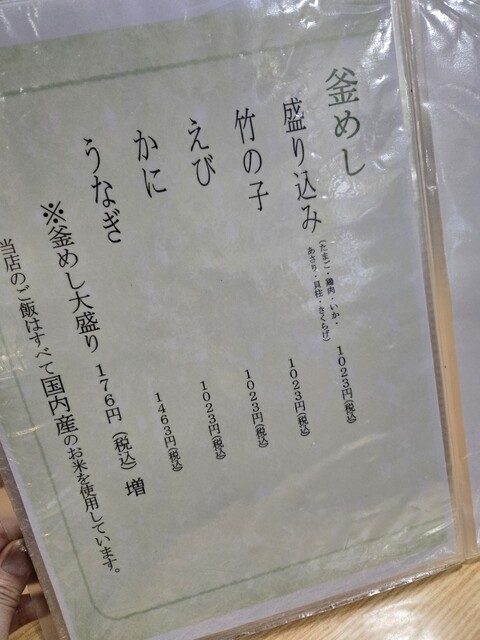 釜めし
盛り込み(たまご・鶏肉・いか・
あさり・貝柱・きくらげ) 1023円(税込)
竹の子 1023円(税込)
えび 1023円(税込)
かに 1023円(税込)
うなぎ 1463円(税込)
※釜めし大盛り 176円(税込)増
当店のご飯はすべて国内産のお米を使用しています。